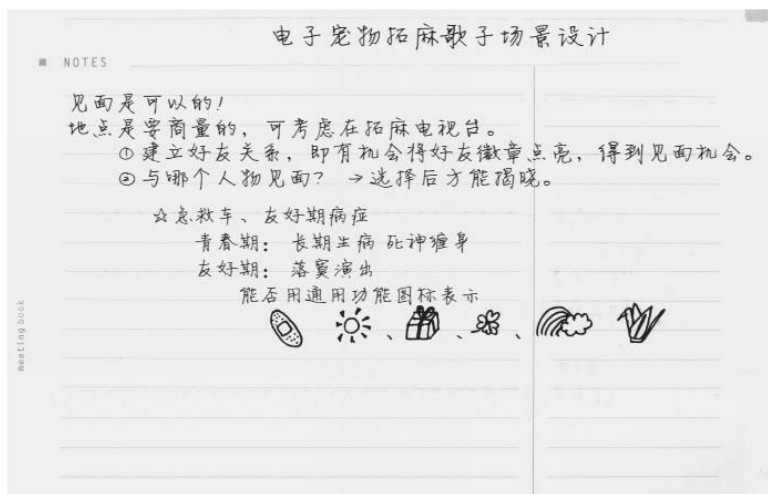 电子宠物拓麻歌子场景设计
NOTES
见面是可以的!
地点是要商量的，可考虑在拓麻电视台。
①建立好友关系，即有机会将好友徽章点亮，得到见面机会。
②与哪个人物见面? →选择后才能揭晓。
☆急救车、友好期病症
青春期: 长期生病 死神缠身
友好期: 落寞演出
能否用通用功能图标表示
、 、 、
meeting book